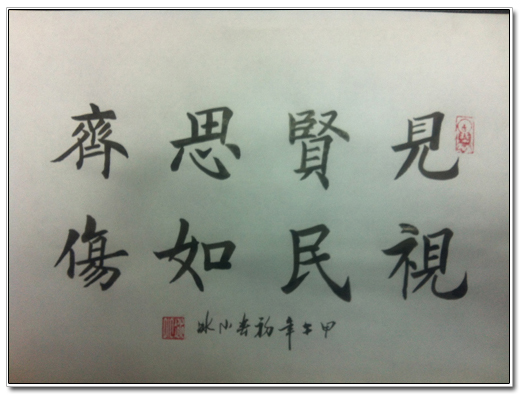 見賢思齊
視民如傷
甲午年初春小冰